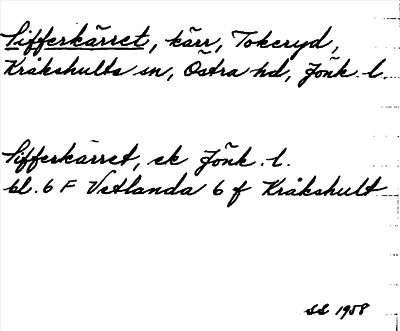 Sifferkärret, kärr, Tokeryd,
Kråkshults sn, Östra hd, Jönk. l.
Sifferkärret, ek Jönk. l.
bl. 6 F Vetlanda 6 f Kråkshult
SS 1958